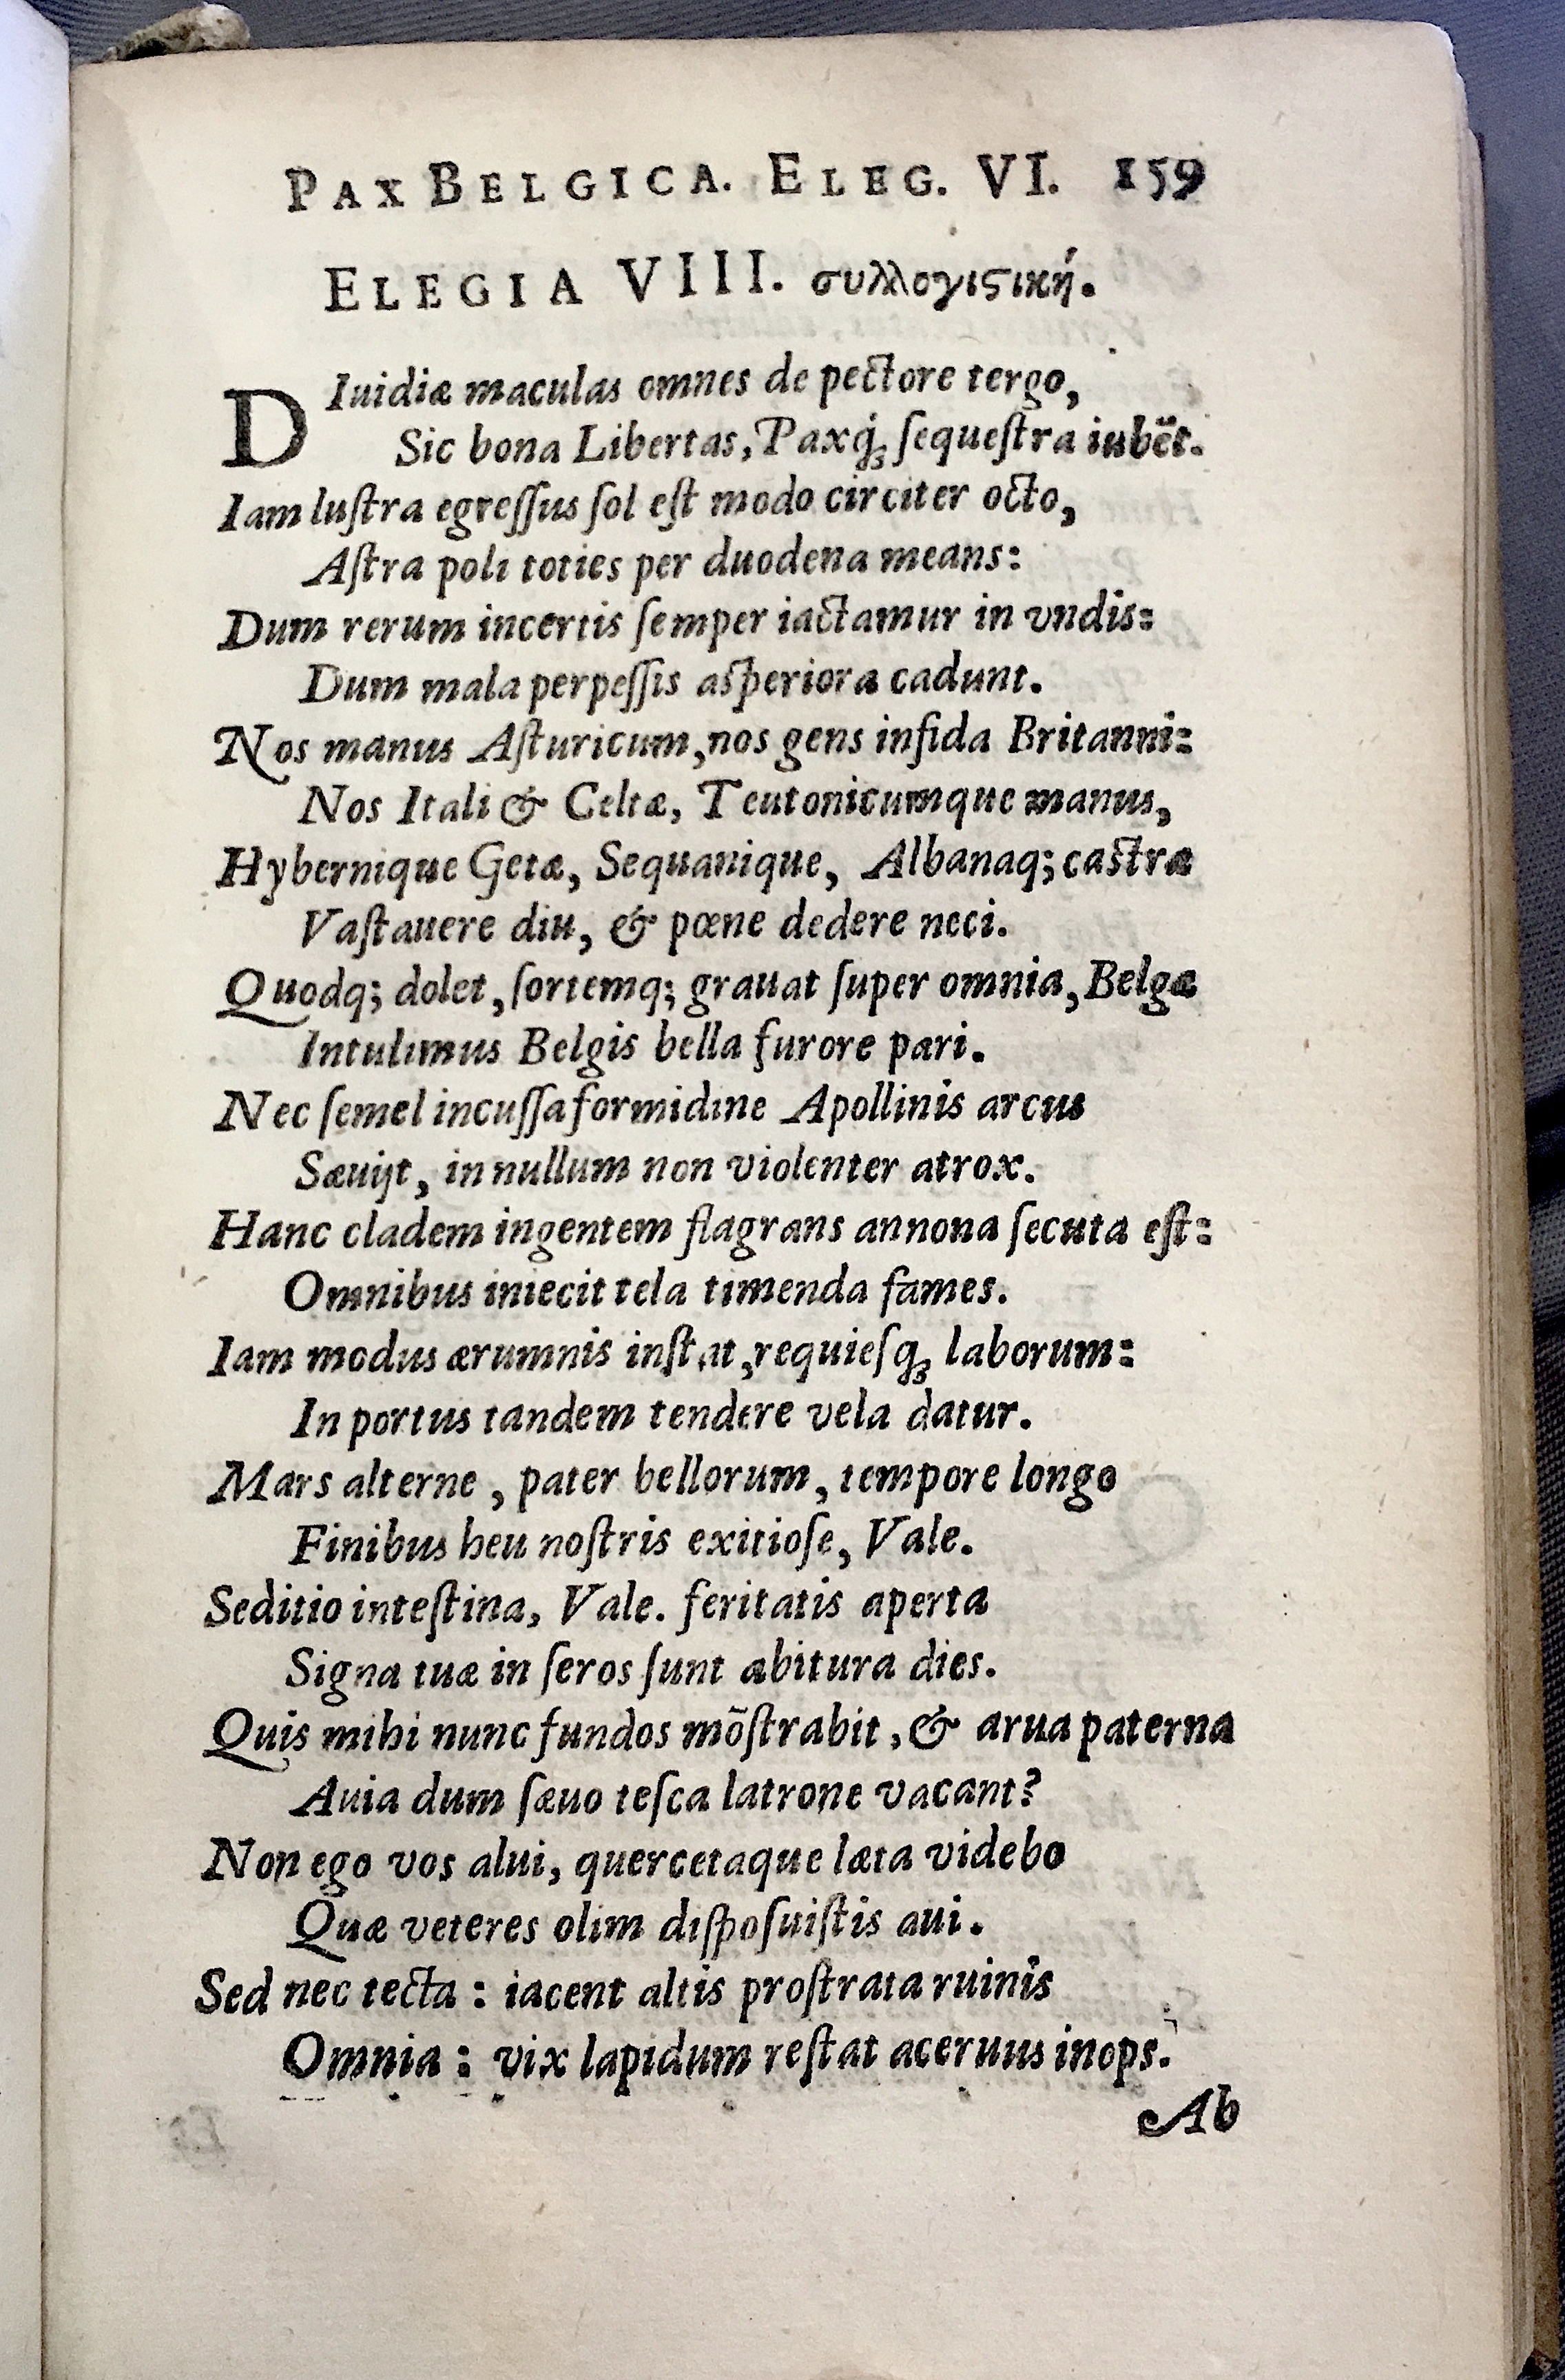 PAX BELGICA. ELEG. VI. 159
ELEGIA VIII. συλλογιϛική.
DIuidiæ maculas omnes de pectore tergo,
Sic bona Libertas, Paxq́; ſequeſtra iubēt.
Iam luſtra egreſſus ſol eſt modo circiter octo,
Aſtra poli toties per duodena means:
Dum rerum incertis ſemper iactamur in vndis:
Dum mala perpeſſis aſperiora cadunt.
Nos manus Aſturicum, nos gens infida Britanni:
Nos Itali & Celtæ, Teutonicumque manus,
Hybernique Getæ, Sequanique, Albanaq; caſtra
Vaſtauere diu, & pœne dedere neci.
Quodq; dolet, ſortemq; grauat ſuper omnia, Belgæ
Intulimus Belgis bella furore pari.
Nec ſemel incuſſa formidine Apollinis arcus
Sæuijt, in nullum non violenter atrox.
Hanc cladem ingentem flagrans annona ſecuta eſt:
Omnibus iniecit tela timenda fames.
Iam modus ærumnis inſtat, requieſq́; laborum:
In portus tandem tendere vela datur.
Mars alterne, pater bellorum, tempore longo
Finibus heu noſtris exitioſe, Vale.
Seditio inteſtina, Vale. feritatis aperta
Signa tuæ in ſeros ſunt abitura dies.
Quis mihi nunc fundos mōſtrabit, & arua paterna
Auia dum ſæuo teſca latrone vacant?
Non ego vos alui, quercetaque læta videbo
Quæ veteres olim diſpoſuiſtis aui.
Sed nec tecta: iacent altis proſtrata ruinis
Omnia: vix lapidum reſtat aceruus inops.
Ab